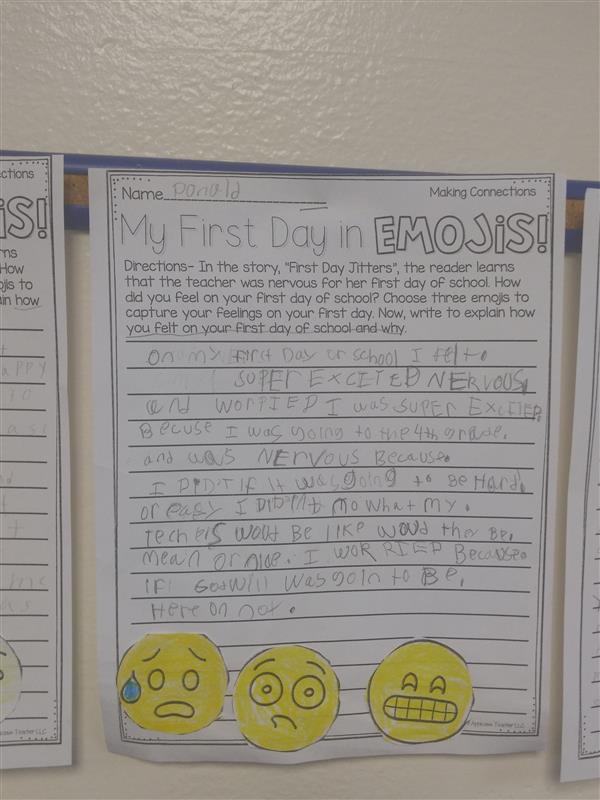 Name Donald
Making Connections
My First Day in EMOJiS!
Directions- In the story, "First Day Jitters", the reader learns
that the teacher was nervous for her first day of school. How
did you feel on your first day of school? Choose three emojis to
capture your feelings on your first day. Now, write to explain how
you felt on your first day of school and why.
On my First Day or school I felt
SUPER EXCITED NERVOUS,
and WORRIED I was SUPER EXCITED
Becuse I was going to the 4th grade.
and was NERVOUS Because
I DIDIT if it was going to Be Hard.
or easy I DIDNt no what my.
techers woud Be like woud they Be.
mean or nice. I WORRIED Because
IF Was goin to Be.
Here on not.
ctions
iS!
rns
How
jis to
ain how
Teacher LLC
Teacher LLC